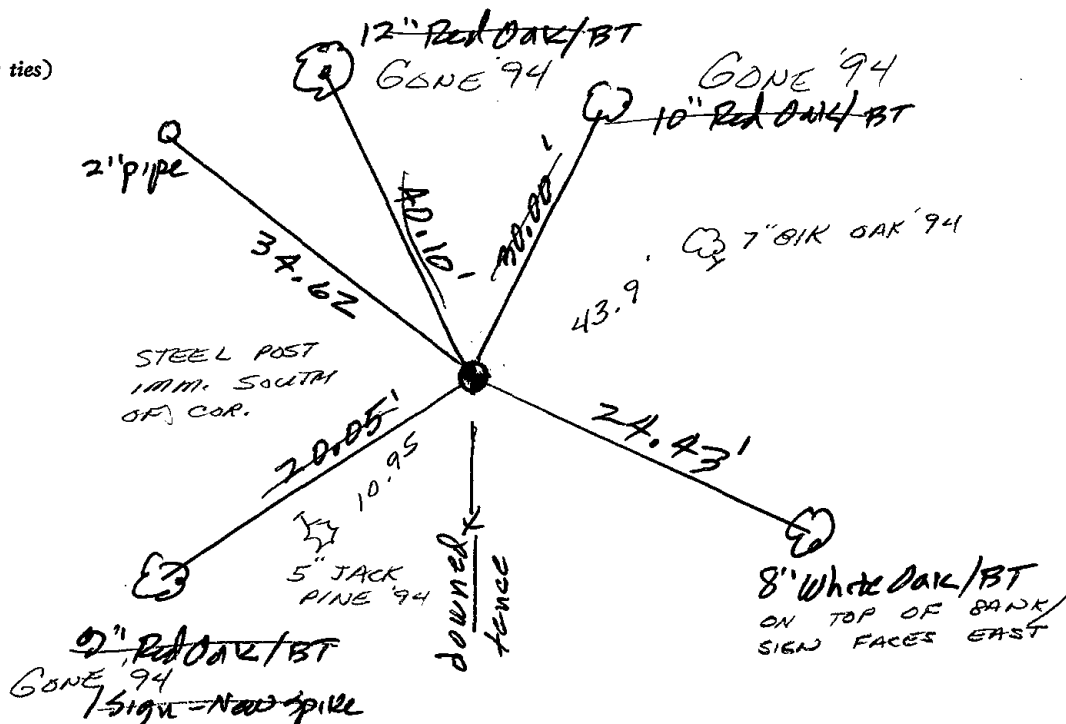 ties)
12" Red Oak/BT
GONE '94
GONE '94
10" Red Oak/BT
2" pipe
40.10'
30.00'
34.62
7" BLK OAK '94
43.9'
STEEL POST
IMM. SOUTH
OF COR.
20.05'
10.95
24.43'
5" JACK
PINE '94
downed
fence
8" White Oak/BT
ON TOP OF BANK/
SIGN FACES EAST
9" Red Oak/BT
GONE '94
/Sign - New Spike